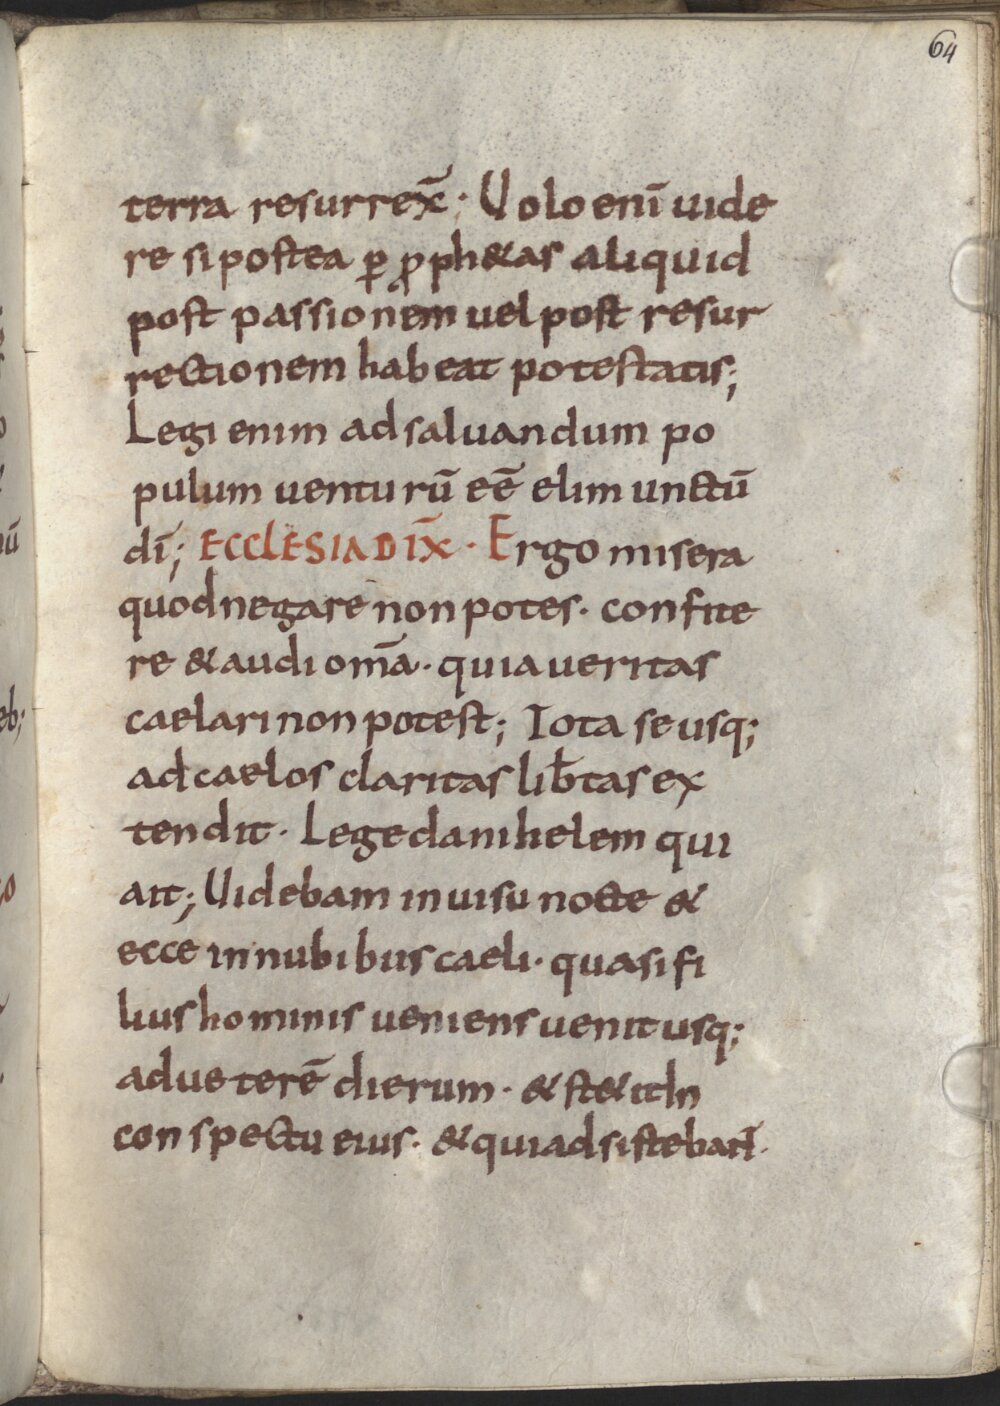 64
terra resurrex̄; Uolo enī uide
re si postea ꝑ ꝓph&as aliquid
post passionem uel post resur
rectionem habeat potestatis;
Legi enim ad saluandum po
pulum uenturū eē elim unctū
dī; ECCLESIA DIX̄ · Ergo misera
quod negare non potes · confite
re & audi omā · quia ueritas
caelari non potest; Iota se usq;
ad caelos claritas lib̄tas ex
tendit · Lege danihelem qui
ait; Uidebam in uisu nocte &
ecce in nubibus caeli · quasi fi
lius hominis ueniens uenit usq;
ad ueterē dierum · & st&it In
conspectu eius · & qui adsistebant